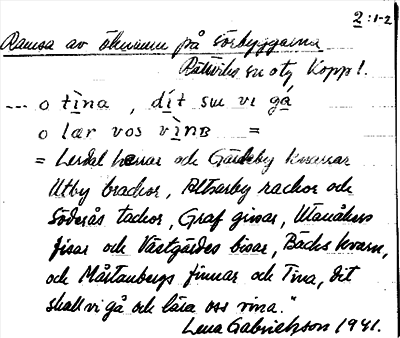 2:1-2
Ramsa av öknamn på sörbyggarna
Rättviks sn o ty Kopp l.
--- o tìna, dít sue vi gá
o lær vos vìnʙ =
= Lerdal hararar och Gärdeby kvarnar
Utby brackor, Altsarby rackor och
Söderås tackor, Graf gissar, Utanåkers
fisar och Västgärdes bisar, Backs kvarn,
och Mårtanbergs finnar och Tina, dit
skall vi gå och lära oss vina."
Lena Gabrielsson 1941.